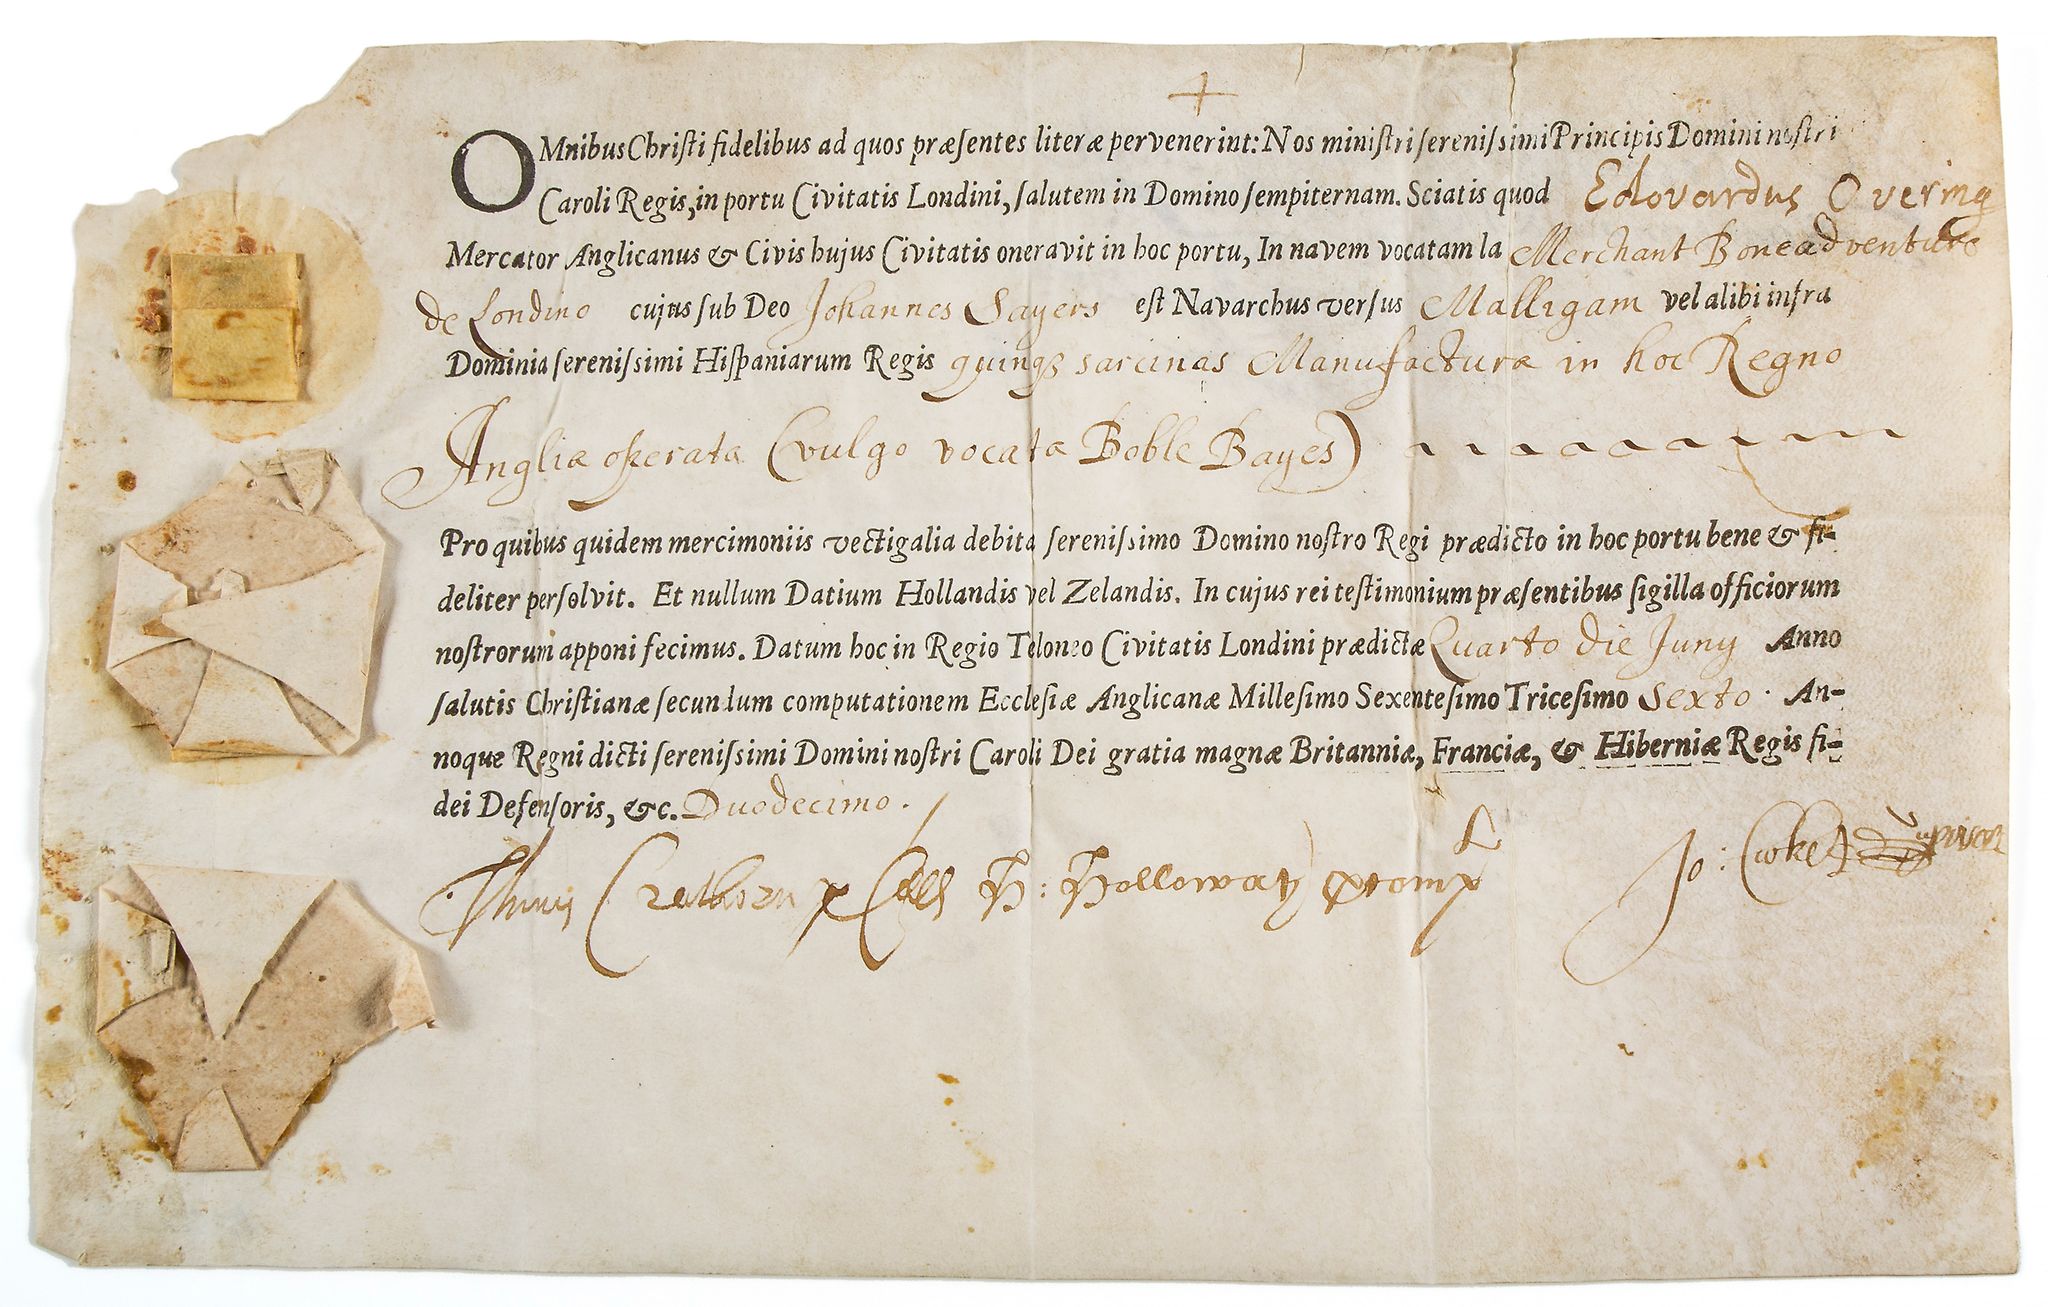 OMnibus Christi fidelibus ad quos præſentes literæ pervenerint: Nos miniſtri ſereniſsimi Principis Domini noſtri
Caroli Regis, in portu Civitatis Londini, ſalutem in Domino ſempiternam. Sciatis quod Edovardus Overing
Mercator Anglicanus & Civis hujus Civitatis oneravit in hoc portu, In navem vocatam la Merchant Boneadventure
de Londino cujus ſub Deo Johannes Sayers eſt Navarchus verſus Malligam vel alibi infra
Dominia ſereniſsimi Hiſpaniarum Regis quinqꝫ sarcinas Manufacturæ in hoc Regno
Angliæ operata (vulgo vocata Boble Bayes)
Pro quibus quidem mercimoniis vectigalia debita ſereniſsimo Domino noſtro Regi prædicto in hoc portu bene & fi-
deliter perſolvit. Et nullum Datium Hollandis vel Zelandis. In cujus rei teſtimonium præſentibus ſigilla officiorum
noſtrorum apponi fecimus. Datum hoc in Regio Teloneo Civitatis Londini prædictæ Quarto die Junij Anno
ſalutis Chriſtianæ ſecundum computationem Eccleſiæ Anglicanæ Milleſimo Sexenteſimo Triceſimo Sexto. An-
noque Regni dicti ſereniſsimi Domini noſtri Caroli Dei gratia magnæ Britanniæ, Franciæ, & Hiberniæ Regis fi-
dei Defenſoris, &c. Duodecimo.
Crathorn H: Holloway Jo: